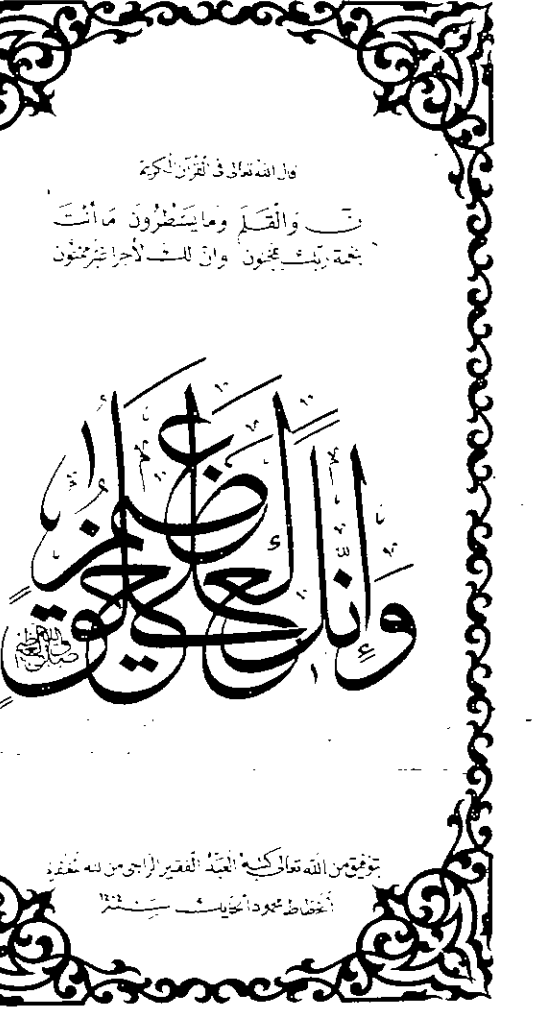 قال الله تعالى في القرآن الكريم
نۤ والقلم وما يسطرون ما أنت
بنعمة ربك بمجنون وان لك لأجرا غير ممنون
وإنك لعلى خلق عظيم
صدق الله العظيم
بتوفيق من الله تعالى كتبه العبد الفقير الراجي من ربه
الخطاط محمود سنة ١٤٠٤